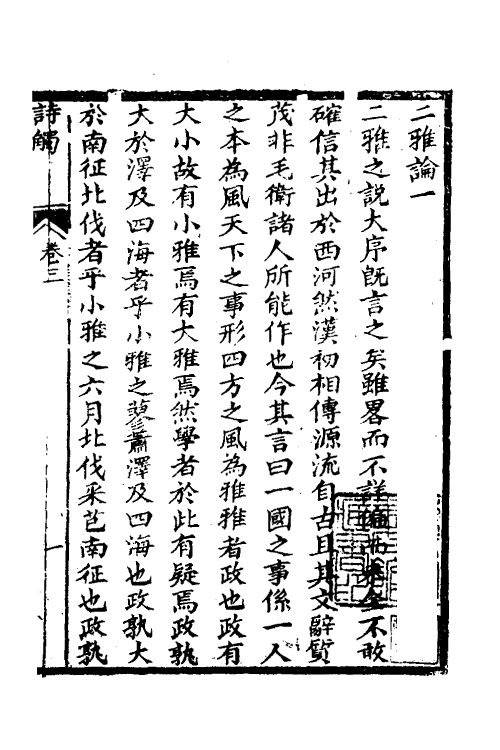 二雅論一
二雅之說大序旣言之矣雖畧而不詳不敢
確信其出於西河然漢初相傳源流自古且其文辭質
茂非毛衛諸人所能作也今其言曰一國之事係一人
之本為風天下之事形四方之風為雅雅者政也政有
大小故有小雅焉有大雅焉然學者於此有疑焉政孰
大於澤及四海者乎小雅之蓼蕭澤及四海也政孰大
於南征北伐者乎小雅之六月北伐采芑南征也政孰
詩觸
卷三
一